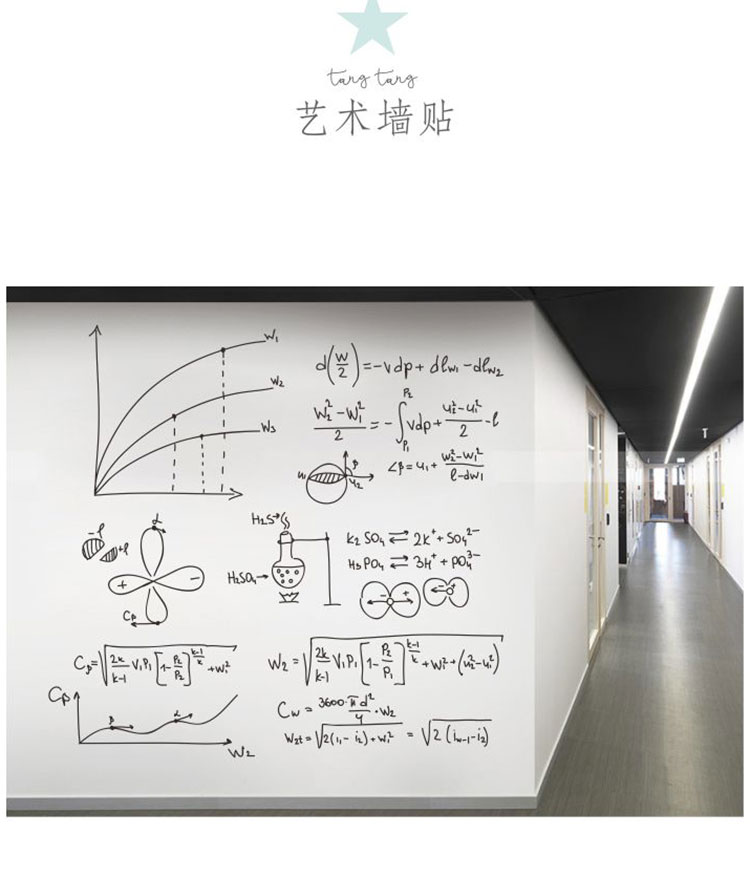 tang tang
艺术墙贴
W₁
W₂
W₃
d(W/2)=-vdp+dlw₁-dlw₂
(W₂²-W₁²)/2=-∫P₁P₂ vdp+(u₂²-u₁²)/2-l
∠β=u₁+(w₂²-w₁²)/(l-dw₁)
u₁ β u₂
H₂S→
H₂SO₄→
K₂SO₄⇄2K⁺+SO₄²⁻
H₃PO₄⇄3H⁺+PO₄³⁻
-l +l
α
+ -
Cp
- +
- +
Cp=√(2k/(k-1) V₁P₁[1-P₂/P₂]^((k-1)/k)+w₁²)
W₂=√(2k/(k-1) V₁P₁[1-P₂/P₁]^((k-1)/k)+w²+(u₂²-u²))
Cp
β α
W₂
Cw=3600·πd²/4·w₂
W₂t=√(2(i₁-i₂)+w₁²)=√(2(iw-1-i₂))